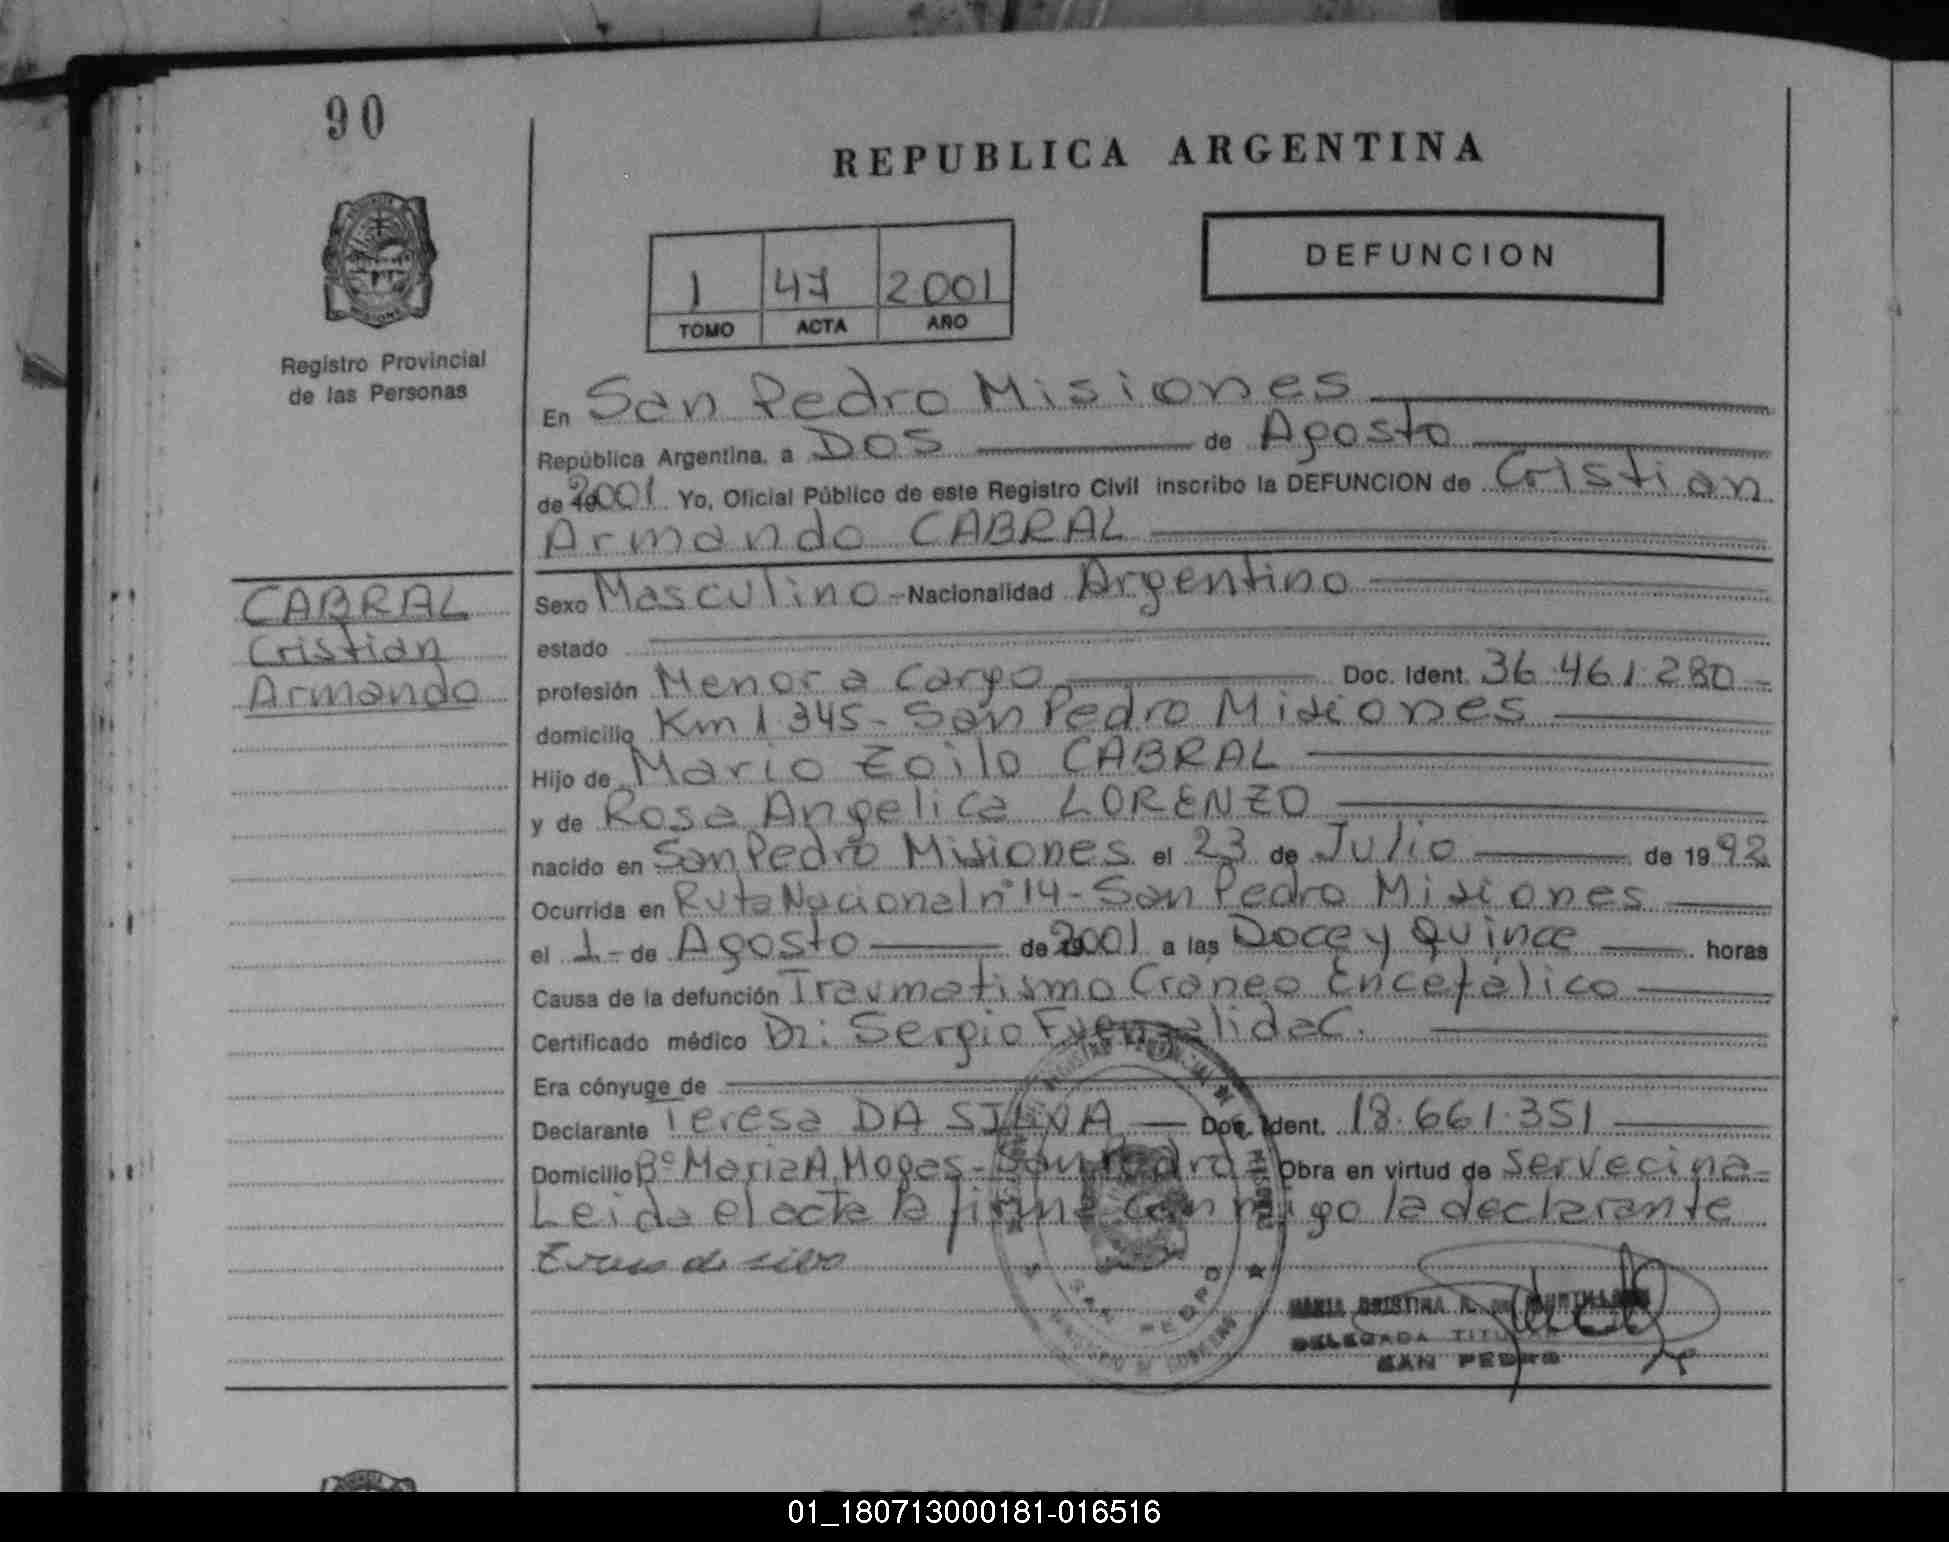 90
REPUBLICA ARGENTINA
DEFUNCION
1 47 2001
TOMO ACTA AÑO
Registro Provincial
de las Personas
En San Pedro Misiones
República Argentina, a DOS de Agosto
de 2001 Yo, Oficial Público de este Registro Civil inscribo la DEFUNCION de Cristian
Armando CABRAL
CABRAL
Cristian
Armando
Sexo Masculino - Nacionalidad Argentino
estado
profesión Menor a cargo Doc. Ident. 36.461.280
domicilio Km 1.345 - San Pedro Misiones
Hijo de Mario Zoilo CABRAL
y de Rosa Angelica LORENZO
nacido en San Pedro Misiones el 23 de Julio de 1992
Ocurrida en Ruta Nacional nº 14 - San Pedro Misiones
el 1 - de Agosto de 2001 a las Doce y Quince horas
Causa de la defunción Traumatismo Craneo Encefalico
Certificado médico Dr: Sergio Fuenzalida C.
Era cónyuge de
Declarante Teresa DA SILVA Doc. Ident. 18.661.351
Domicilio Bº Maria A. Mogas - San Pedro Obra en virtud de ser vecina
Leida el acta la firma conmigo la declarante
de silva
MARIA CRISTINA
DELEGADA TITULAR
SAN PEDRO
SAN PEDRO
01_180713000181-016516